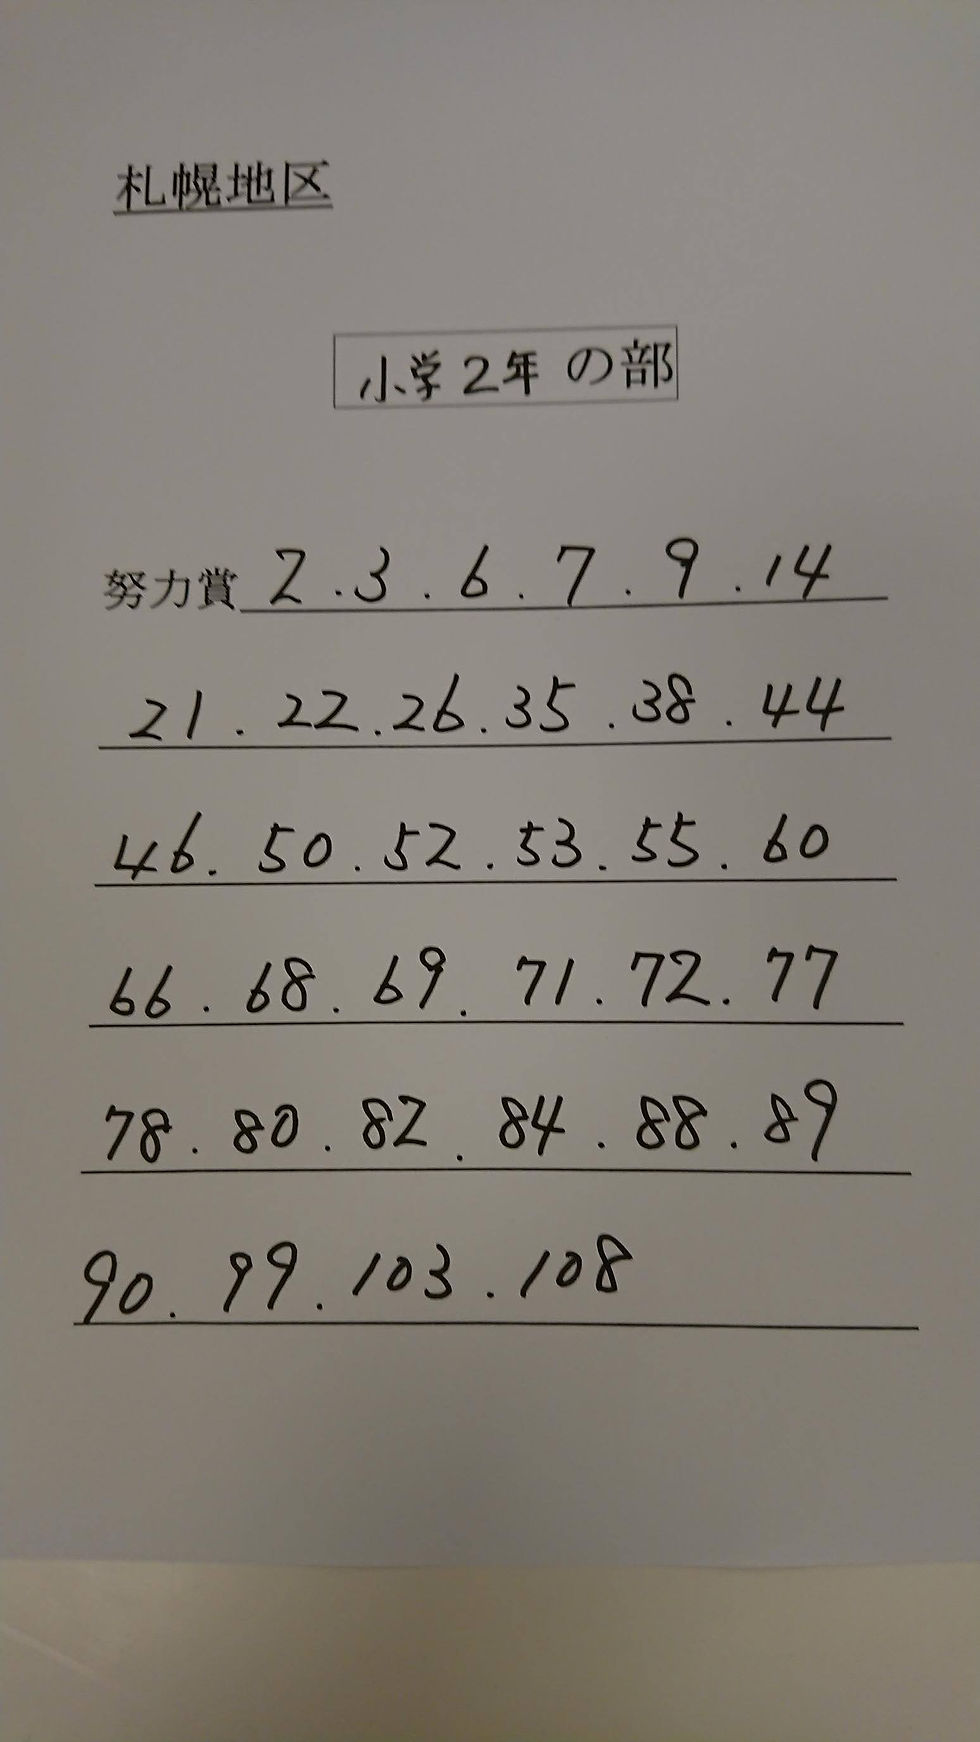 札幌地区
小学2年 の部
努力賞 2.3.6.7.9.14
21.22.26.35.38.44
46.50.52.53.55.60
66.68.69.71.72.77
78.80.82.84.88.89
90.99.103.108